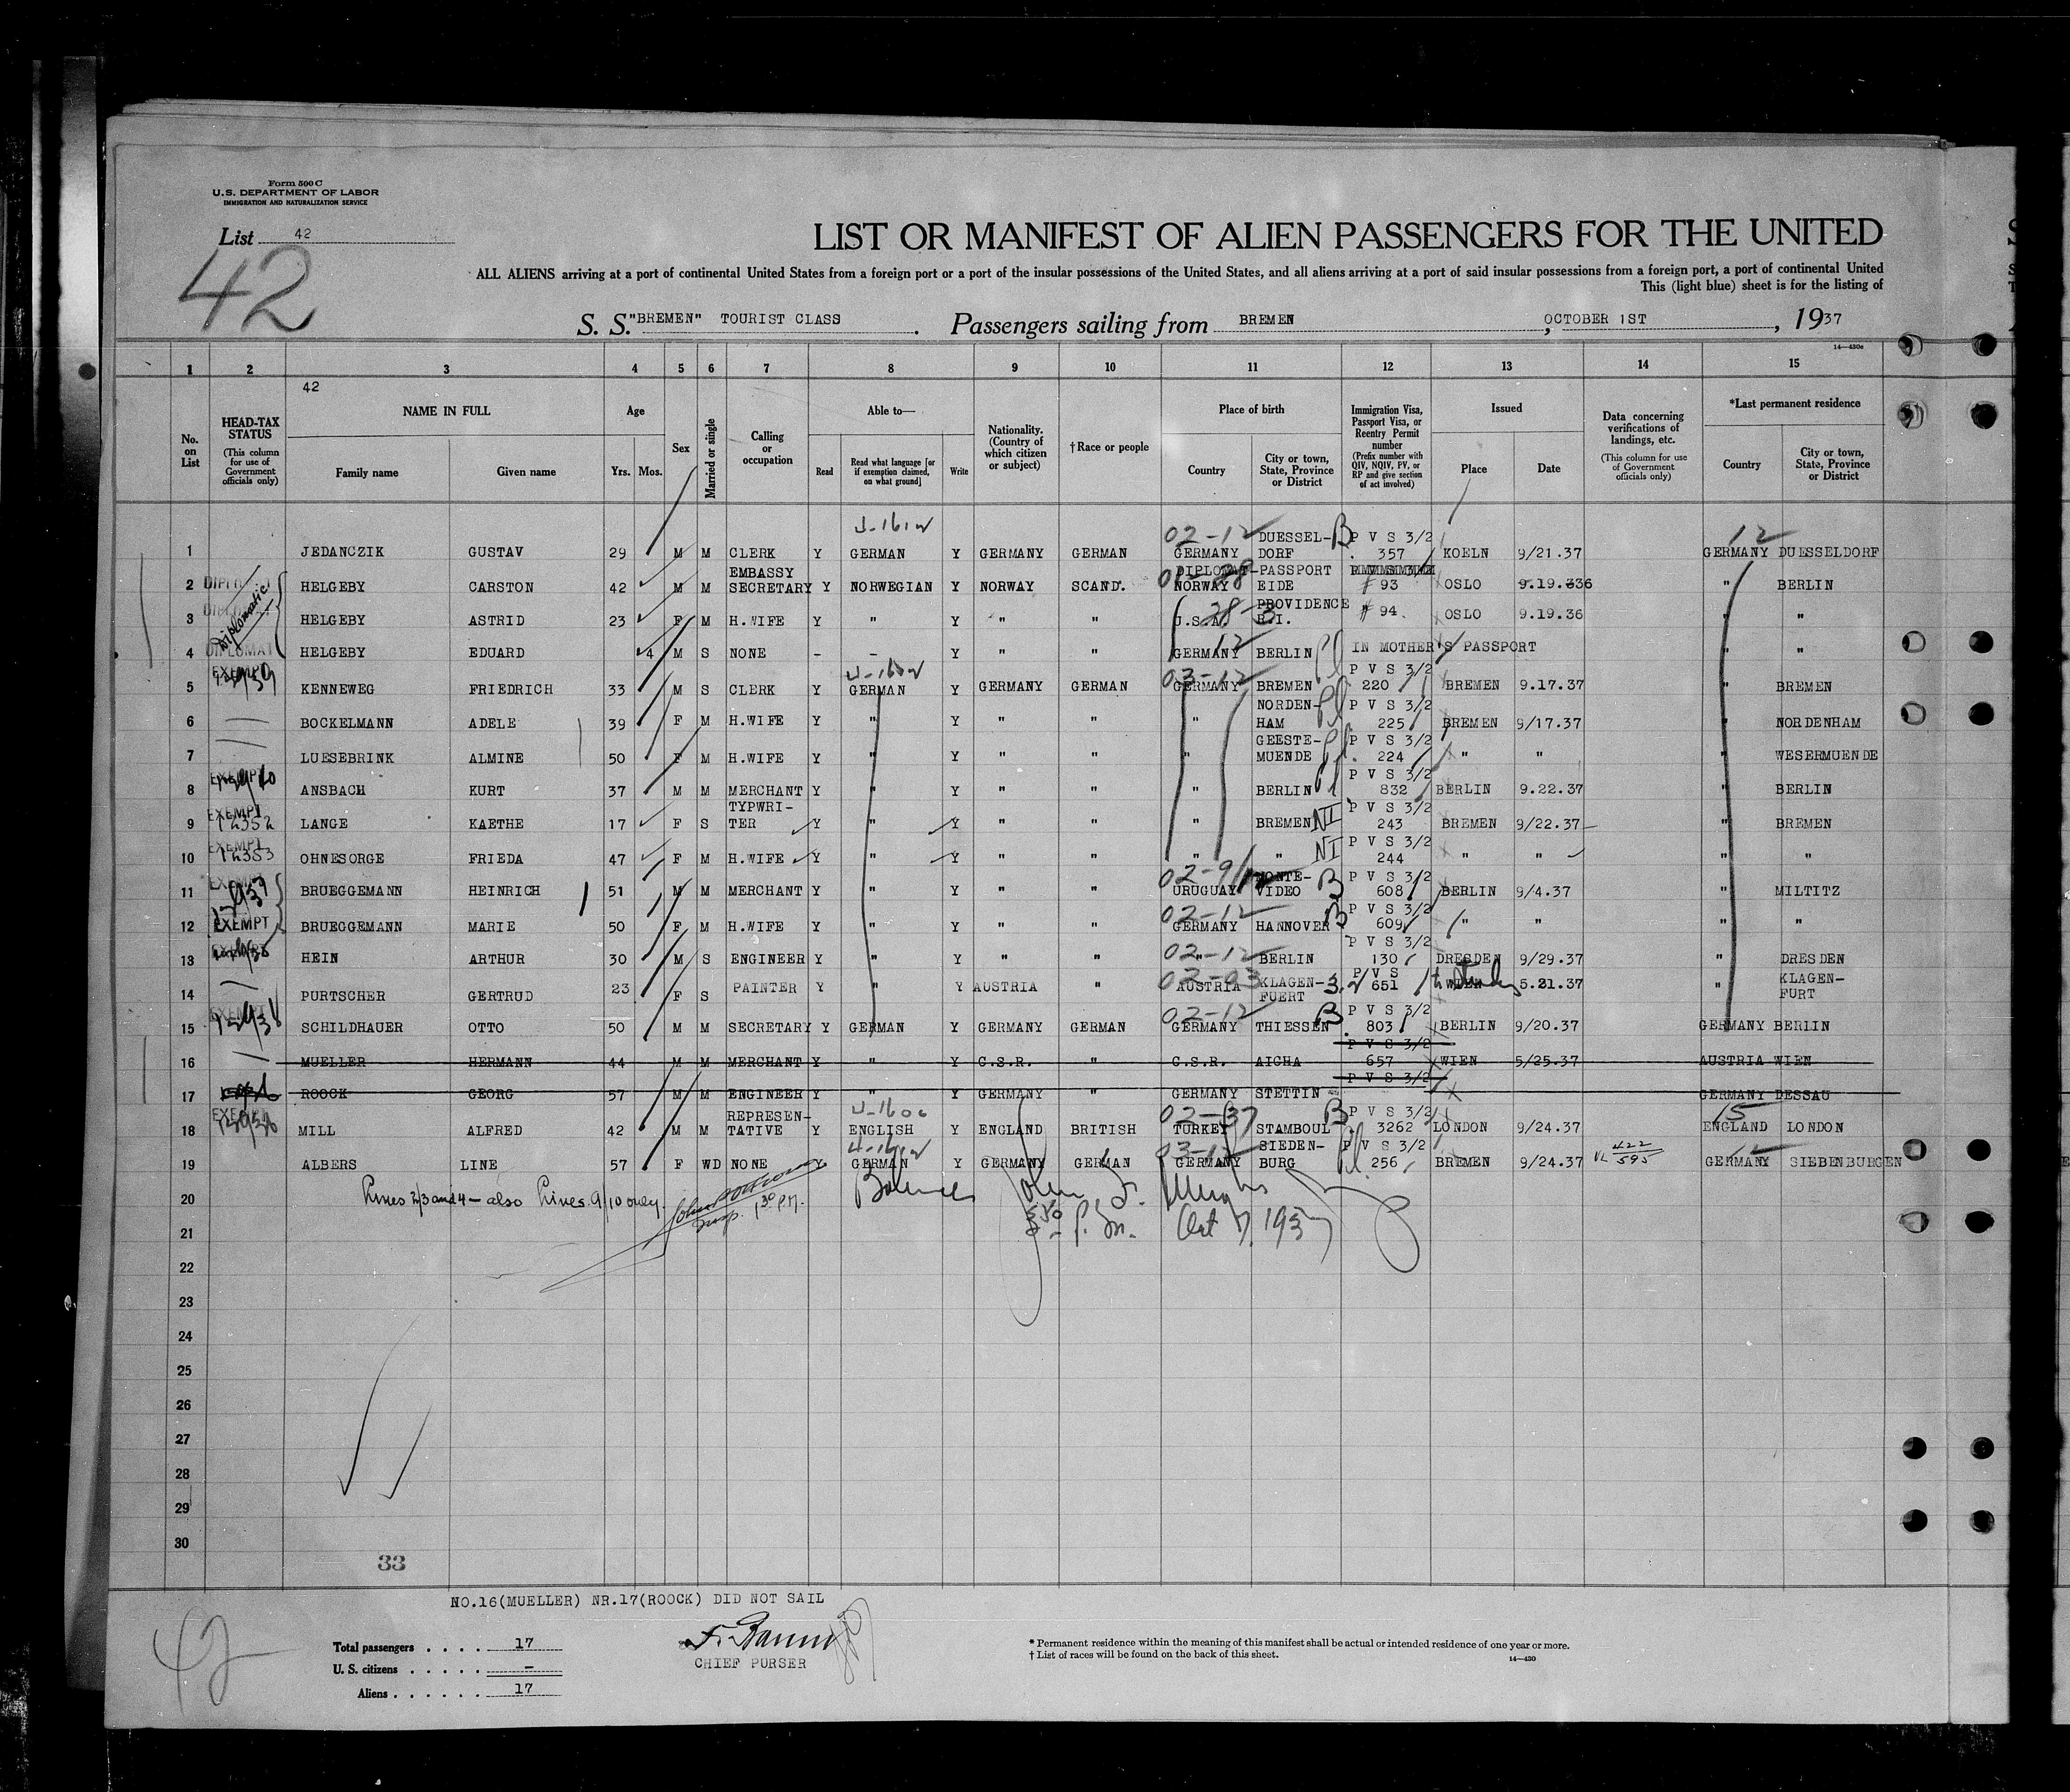 Form 500 C
U.S. DEPARTMENT OF LABOR
IMMIGRATION AND NATURALIZATION SERVICE
List 42
42
LIST OR MANIFEST OF ALIEN PASSENGERS FOR THE UNITED
ALL ALIENS arriving at a port of continental United States from a foreign port or a port of the insular possessions of the United States, and all aliens arriving at a port of said insular possessions from a foreign port, a port of continental United
This (light blue) sheet is for the listing of
S. S. "BREMEN" TOURIST CLASS . Passengers sailing from BREMEN , OCTOBER 1ST , 1937
14—430a
1 2 3 4 5 6 7 8 9 10 11 12 13 14 15
42
No. on List
HEAD-TAX STATUS (This column for use of Government officials only)
NAME IN FULL Family name Given name
Age Yrs. Mos.
Sex
Married or single
Calling or occupation
Able to— Read Read what language [or if exemption claimed, on what ground] Write
Nationality. (Country of which citizen or subject)
†Race or people
Place of birth Country City or town, State, Province or District
Immigration Visa, Passport Visa, or Reentry Permit number (Prefix number with QIV, NQIV, PV, or RP and give section of act involved)
Issued Place Date
Data concerning verifications of landings, etc. (This column for use of Government officials only)
*Last permanent residence Country City or town, State, Province or District
02-12 12
1 JEDANCZIK GUSTAV 29 M M CLERK Y GERMAN Y GERMANY GERMAN GERMANY DUESSEL-DORF B P V S 3/2 357 KOELN 9/21.37 GERMANY DUESSELDORF
2 Diplomatic HELGEBY CARSTON 42 M M EMBASSY SECRETARY Y NORWEGIAN Y NORWAY SCAND. NORWAY EIDE DIPLOMAT-PASSPORT # 93 OSLO 9.19.336 " BERLIN
3 HELGEBY ASTRID 23 F M H.WIFE Y " Y " " U.S.A. PROVIDENCE R.I. # 94. OSLO 9.19.36 " "
4 DIPLOMAT HELGEBY EDUARD 4 M S NONE - - Y " " GERMANY BERLIN IN MOTHER'S PASSPORT " "
5 EXEMPT KENNEWEG FRIEDRICH 33 M S CLERK Y GERMAN Y GERMANY GERMAN 03-12 GERMANY BREMEN P V S 3/2 220 BREMEN 9.17.37 " BREMEN
6 BOCKELMANN ADELE 39 F M H.WIFE Y " Y " " " NORDEN-HAM P V S 3/2 225 BREMEN 9/17.37 " NORDENHAM
7 LUESEBRINK ALMINE 50 F M H.WIFE Y " Y " " " GEESTE-MUENDE P V S 3/2 224 " " " WESERMUENDE
8 EXEMPT ANSBACH KURT 37 M M MERCHANT Y " Y " " " BERLIN P V S 3/2 832 BERLIN 9.22.37 " BERLIN
9 EXEMPT LANGE KAETHE 17 F S TYPWRI-TER Y " Y " " " BREMEN P V S 3/2 243 BREMEN 9/22.37 " BREMEN
10 EXEMPT OHNESORGE FRIEDA 47 F M H.WIFE Y " Y " " " " P V S 3/2 244 " " " "
11 BRUEGGEMANN HEINRICH 51 M M MERCHANT Y " Y " " URUGUAY MONTE-VIDEO B P V S 3/2 608 BERLIN 9/4.37 " MILTITZ
12 EXEMPT BRUEGGEMANN MARIE 50 F M H.WIFE Y " Y " " 02-12 GERMANY HANNOVER B P V S 3/2 609 " " " "
13 HEIN ARTHUR 30 M S ENGINEER Y " Y " " 02-12 " BERLIN P V S 3/2 130 DRESDEN 9/29.37 " DRESDEN
14 PURTSCHER GERTRUD 23 F S PAINTER Y " Y AUSTRIA " AUSTRIA KLAGEN-FUERT P V S 651 WIEN 5.21.37 " KLAGEN-FURT
15 EXEMPT SCHILDHAUER OTTO 50 M M SECRETARY Y GERMAN Y GERMANY GERMAN 02-12 GERMANY THIESSEN B P V S 3/2 803 BERLIN 9/20.37 GERMANY BERLIN
16 MUELLER HERMANN 44 M M MERCHANT Y " Y C.S.R. " C.S.R. AICHA P V S 3/2 657 WIEN 5/25.37 AUSTRIA WIEN
17 ROOCK GEORG 57 M M ENGINEER Y " Y GERMANY " GERMANY STETTIN P V S 3/2 GERMANY DESSAU
18 EXEMPT MILL ALFRED 42 M M REPRESEN-TATIVE Y ENGLISH Y ENGLAND BRITISH 02-37 TURKEY STAMBOUL B P V S 3/2 3262 LONDON 9/24.37 15 ENGLAND LONDON
19 ALBERS LINE 57 F WD NONE Y GERMAN Y GERMANY GERMAN 03-12 GERMANY SIEDEN-BURG P V S 3/2 256 BREMEN 9/24.37 422 595 12 GERMANY SIEBENBURGEN
20 Lines 2/3 and 4 — also Lines 9/10 only. Insp. 1 30 P.M.
21 P.M. Oct 7, 1937
22
23
24
25
26
27
28
29
30
33
NO.16(MUELLER) NR.17(ROOCK) DID NOT SAIL
42
Total passengers . . . . 17
U. S. citizens . . . . . –
Aliens . . . . . . 17
CHIEF PURSER
* Permanent residence within the meaning of this manifest shall be actual or intended residence of one year or more.
† List of races will be found on the back of this sheet.
14—430